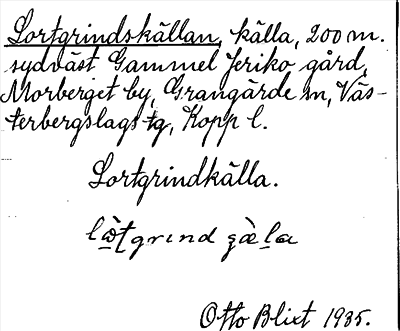 Lortgrindskällan, källa, 200 m.
sydväst Gammel Jeriko gård,
Morberget by, Grangärde sn, Väs-
terbergslags tg, Kopp l.
Lortgrindkälla.
grind
Otto Blixt 1935.